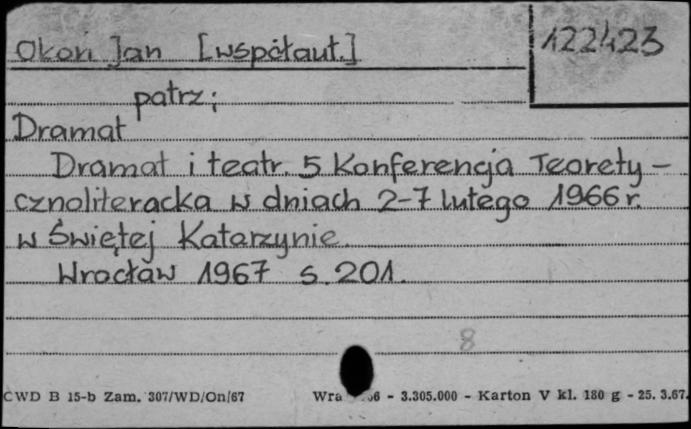 Okoń Jan [współaut.]
122423
patrz;
Dramat
Dramat i teatr. 5 Konferencja Teorety-
cznoliteracka w dniach 2-7 lutego 1966 r.
w Świętej Katarzynie.
Wrocław 1967 s. 201.
8
CWD B 15-b Zam. 307/WD/On/67 Wra 66 - 3.305.000 - Karton V kl. 180 g - 25. 3.67.